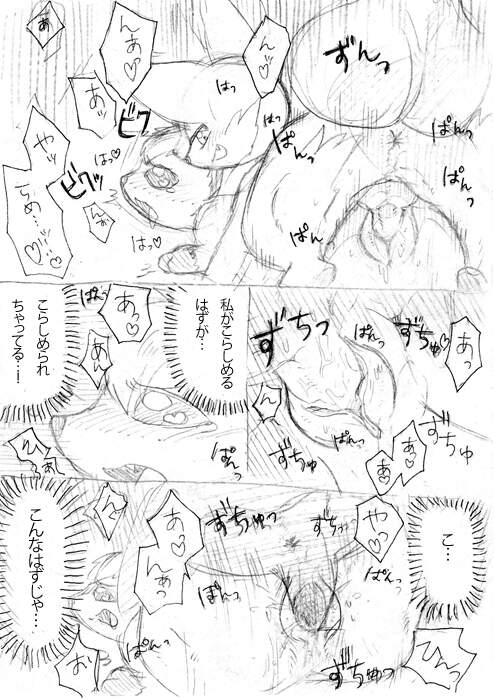 ずんっ
んっ♡
んあっ♡
あ
はっ
あッ
ビク
はっ
ぱんっ
ぱんっ
ぱんっ
ぱんっ
ぱん
やッ
らめ…ッ…♡
ビクッ
はっ♡
んぁ
はっ♡
ずちゅ♡
あっ
ぱんっ
ずちっ
ん
ずちゅ
ぱんっ
あ♡
あ♡
ずちゅ
私がこらしめる
はずが…
あっ♡
ぱんっ
あん
こらしめられ
ちゃってる…!
ぱんっ
こ…
やっ♡
ずちゅっ
ずちゅっ
ぱんっ
あ♡
んあっ
ぱんっ
ずちゅっ
ぱんっ
こんなはずじゃ…